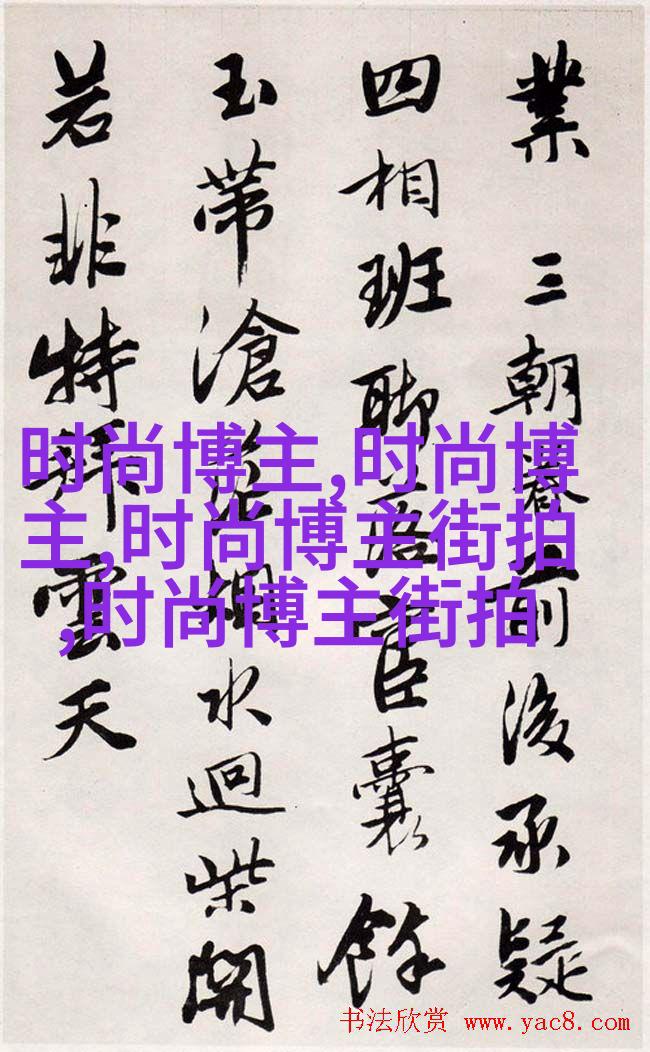 業 三朝前後承疑
四相班居臣囊餘
玉帶滄烟水迴柴開
若非特拜雲天
时尚博主,时尚博
主,时尚博主街拍
,时尚博主街拍
书法欣赏 www.yac8.com